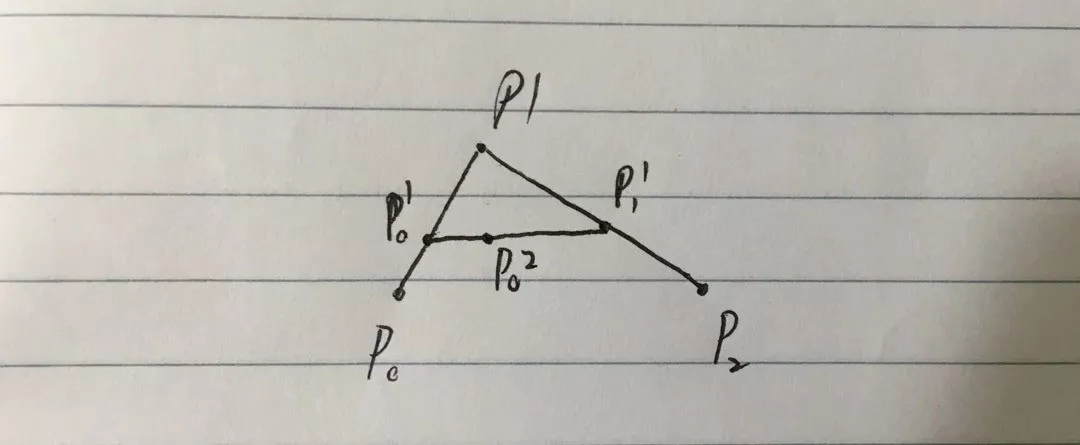 P1
P₀¹
P₁¹
P₀²
P₀
P₂